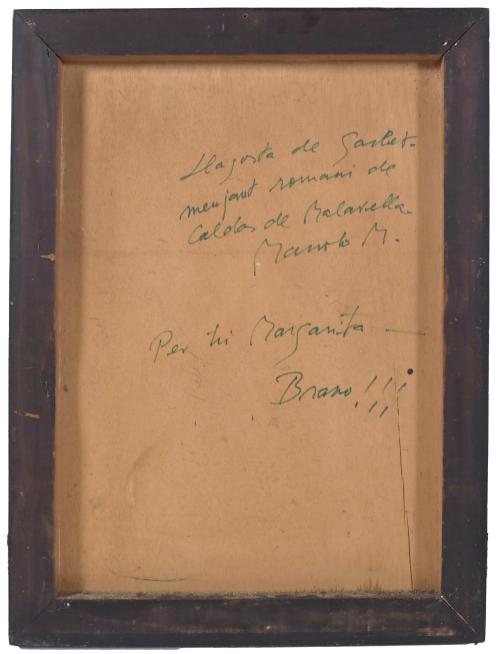 Llagosta de Gasket-
menjant romani de
Caldas de Malavella.
Manolo M.
Per tu Margarita —
Bravo!!!
!!